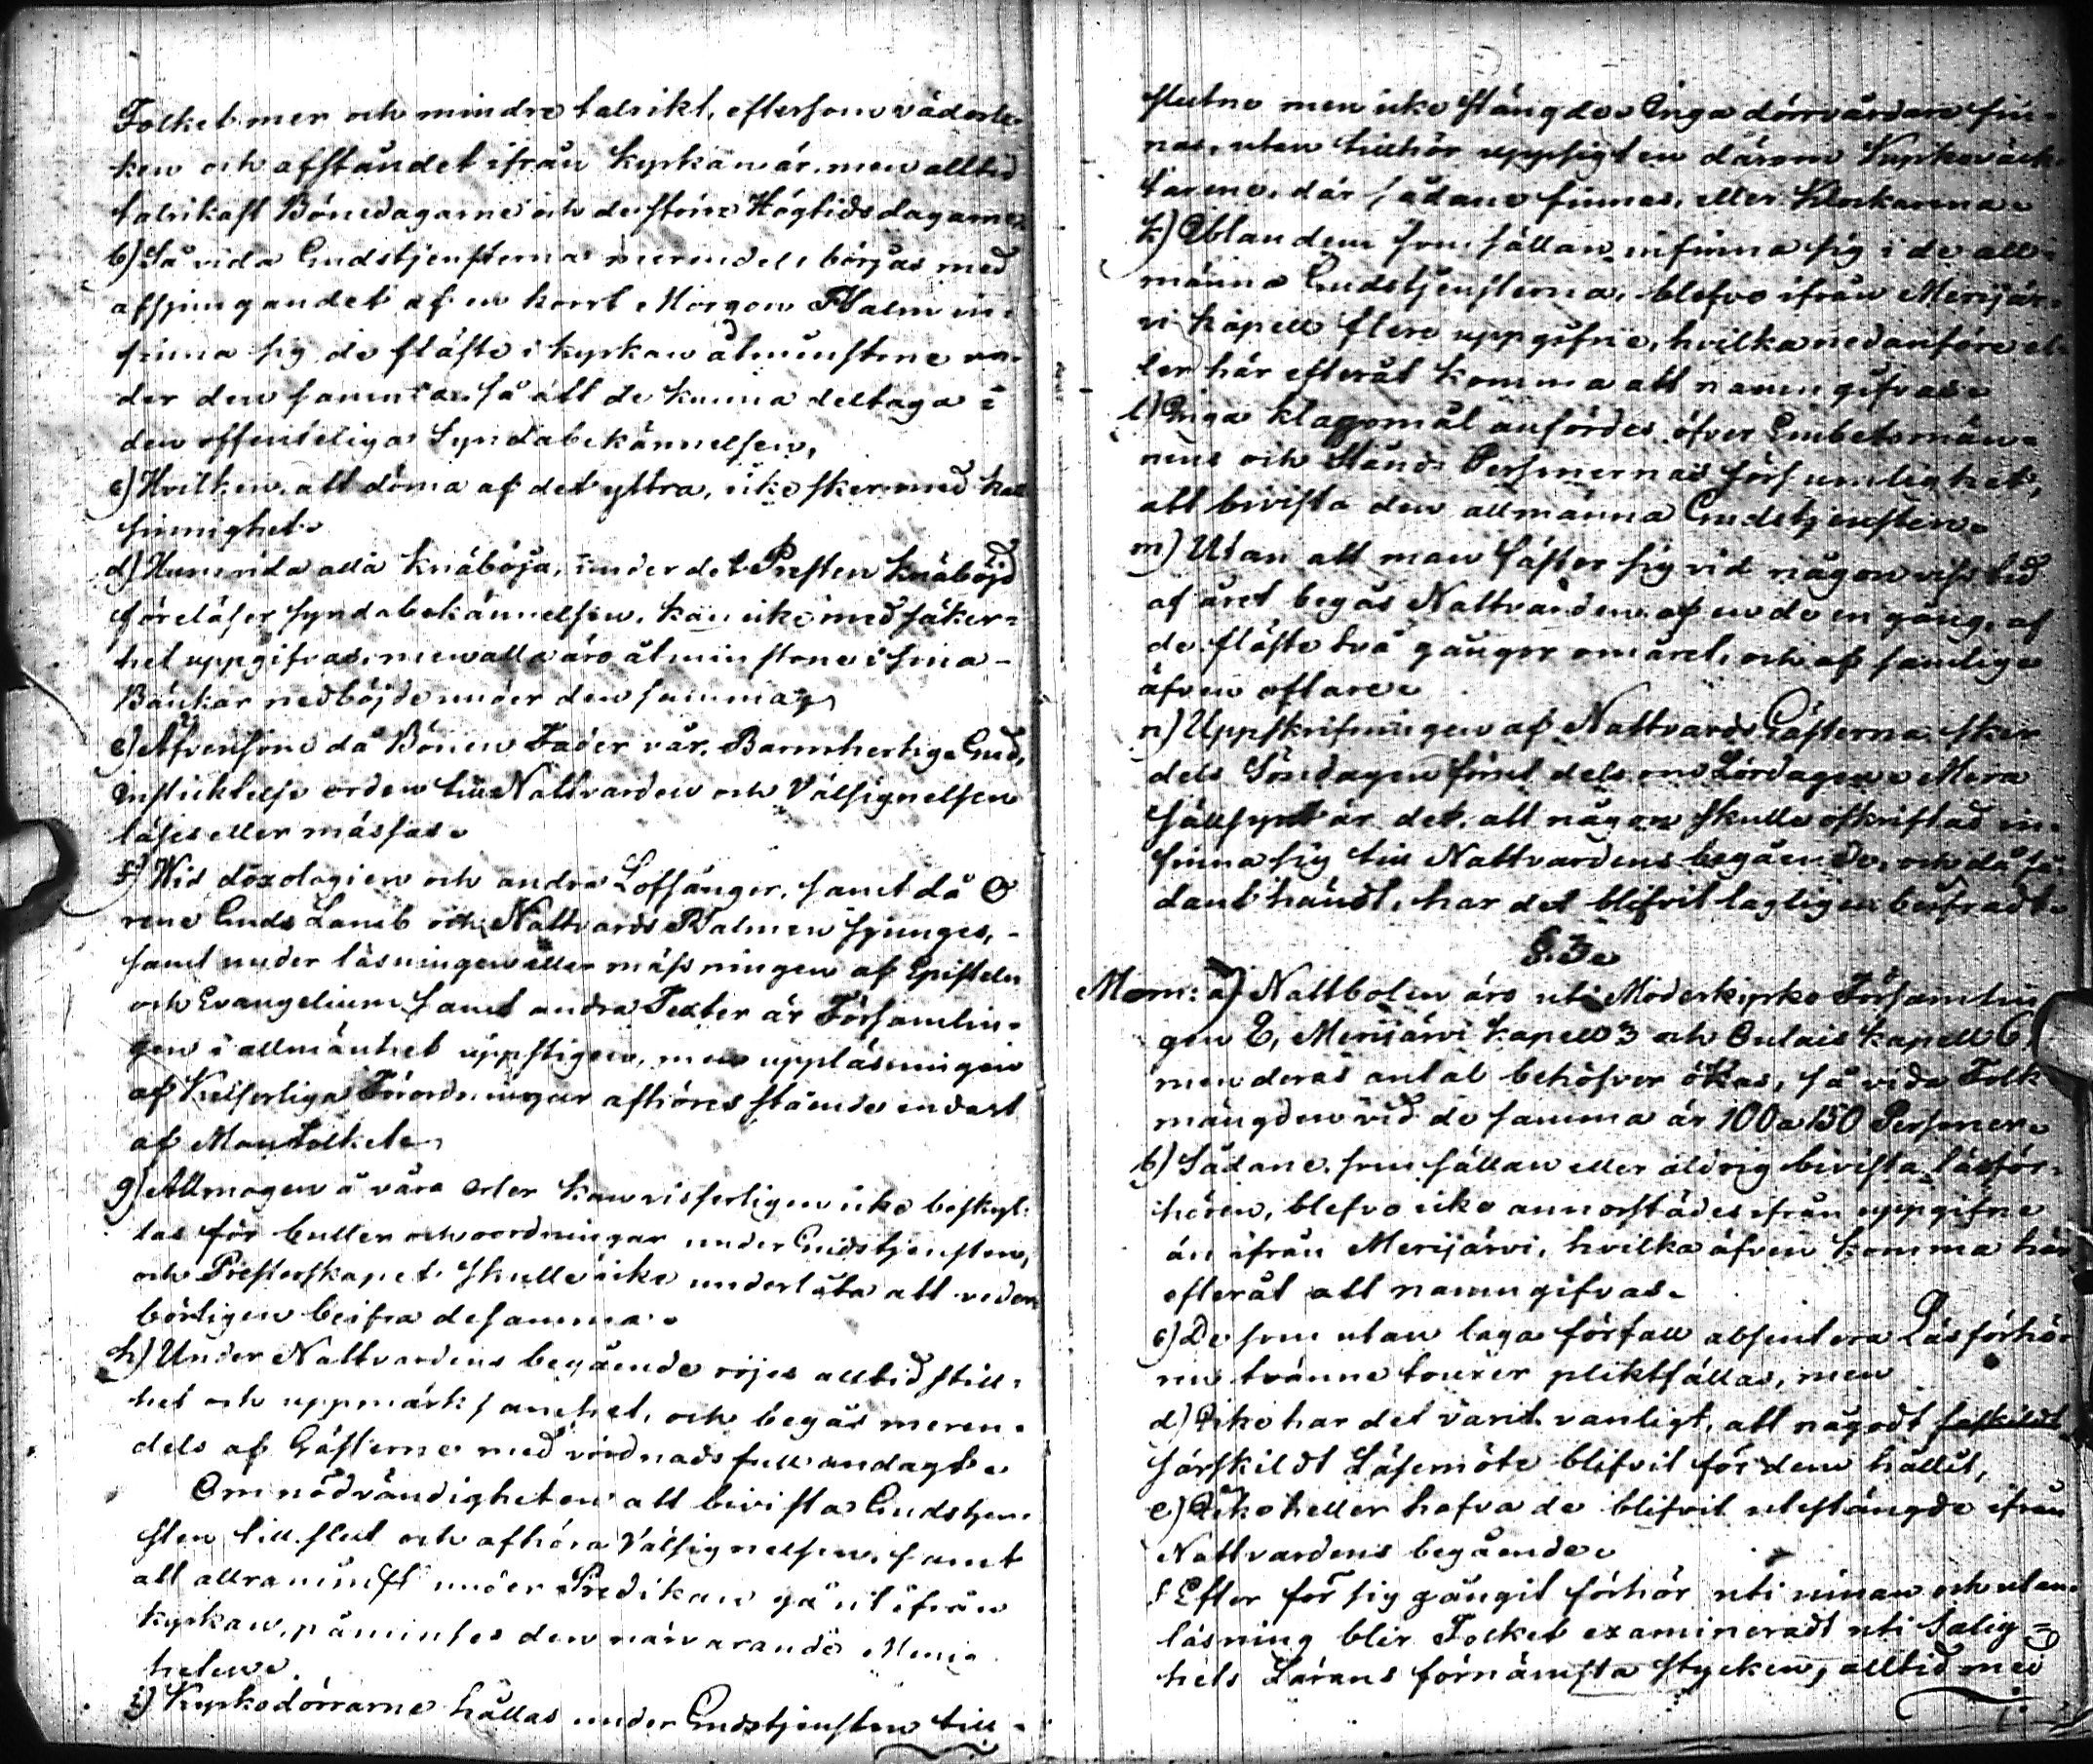 Folket mer och mindre talrikt, eftersom väderle-
ken och afståndet ifrån kyrkan är, men alltid
talrikast Bönedagarne och de större Högtidsdagarne.
b) Så vida Gudstjensterna merendels börjas med
afsjungandet af en kort Morgon Psalm in-
finna sig de fläste i kyrkan åtminstone un-
der den samma så att de kunna deltaga i
den offenteliga Syndabekännelsen,
c) Hvilken, att döma af det yttra, icke sker med kall
sinnighet.
d) Huruvida alla knäböja, under det Presten knäböjd
föreläser syndabekännelsen, kan icke med säker-
het uppgifvas, men alla äro åtminstone i sina
Bänkar nedböjde under den samma,
e) Äfvensom då Bönen Fader vår, Barmhertige Gud,
Insticktelse orden till Nattvarden och Välsignelsen
läses eller mässas.
f) Wid doxologien och andra Lofsånger, samt då O
rene Guds Lamb och Nattvards Psalmen sjunges,
samt under läsningen eller mässningen af Episteln
och Evangelium samt andra Texter är Församlin-
gen i allmänhet uppstigen, men uppläsningen
af Kejserliga Förordningar afhöres stående endast
af Manfolket.
g) Allmogen å våra orter kan visserligen icke beskyl-
las för buller och oordningar under Gudstjensten,
och Presterskapet skulle icke underlåta att veder-
börligen beifra desamma.
h) Under Nattvardens begående röjes alltid still-
het och uppmärksamhet, och begås meren-
dels af Gästerne med vördnadsfull andagt.
Om nödvändigheten att bevista Gudstjen-
sten till slut och afhöra Välsignelsen, samt
att allraminst under Predikan gå ut ifrån
kyrkan, påminnes den närvarande Menig
heten.
i) Kyrkodörrarne hållas under Gudstjensten till-
slutne men icke stängde. Inga dörrvärdare fin-
nas, utan tillhör uppsigten därom Kyrkoväck-
tarene, där sådane finnes, eller Klockarena.
k) Ibland dem som sällan infinna sig i de all-
männa Gudstjensterna, blefvo ifrån Merijär-
vi kapell flere uppgifne, hvilka nedanföre el-
ler här efteråt komma att namngifvas.
l) Inga klagomål anfördes öfver Embetsmän-
nens och Stånds Personernas försumlighet,
att bevista den allmänna Gudstjensten.
m) Utan att man fäster sig vid någon viss tid
af året begås Nattvarden af en del en gång, af
de fläste två gånger om året, och af samlige
äfven oftare.
n) Uppskrifningen af Nattvards Gästerna sker
dels Söndagen förut dels om Lördagen. Mera
sällsynt är det, att någon skulle oskriftad in-
finna sig till Nattvardens begående, och då så-
dant händt, har det blifvit lagligen beifradt.
§ 3.
Mom: a) Nattbolen äro uti Moderkyrko Församlin
gen 8, Merijärvi kapell 3 och Oulais kapell 6,
men deras antal behöfver ökas, så vida Folk
mängden vid de samma är 100 a 150 Personer.
b) Sådane, som sällan eller aldrig bevista läsför-
hören, blefvo icke annorstädes ifrån uppgifne
än ifrån Merijärvi, hvilka äfven komma här
efteråt att namngifvas.
c) De som utan laga förfall absentera Läsförhör
en tvänne tourer pliktfällas, men
d) Icke har det varit vanligt, att någodt
särskildt Läsemöte blifvit för dem hållit,
e) Icke heller hafva de blifvit utestängde ifrån
Nattvardens begående.
f Efter för sig gångit förhör uti innan och utan-
läsning blir Folket examineradt uti Salig-
hets Lärans förnämsta stycken, alltid med